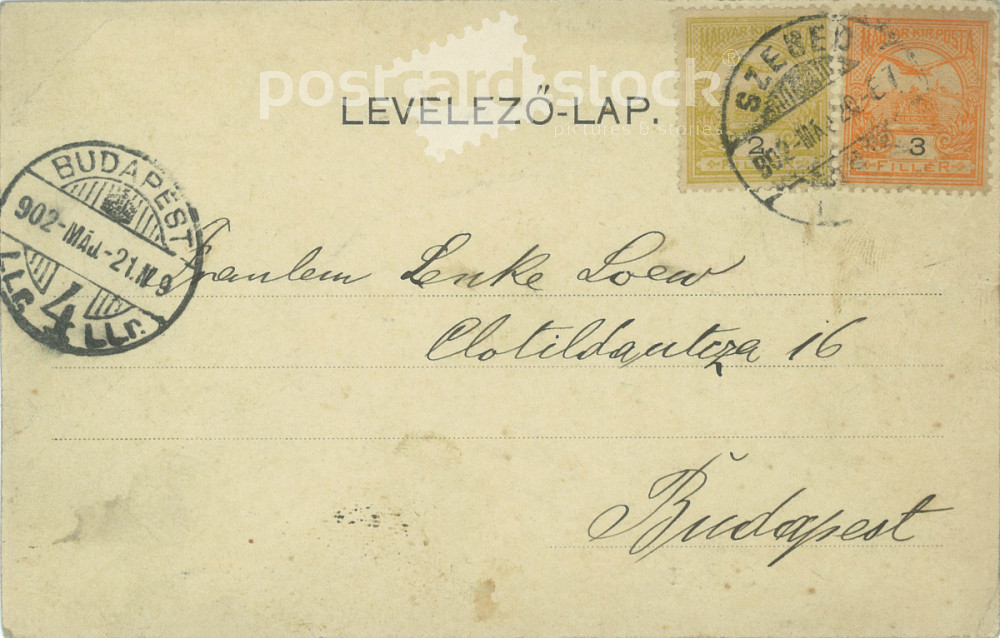 postcard stock®
pictures & stories
LEVELEZŐ-LAP.
MAGYAR KIR. POSTA
2
FILLÉR
MAGYAR KIR. POSTA
3
FILLÉR
SZEGED
902-MÁJ.20-E7
BUDAPEST
902-MÁJ.-21.N.9
4
Fräulein Lenke Loew
Clotildautcza 16
Budapest